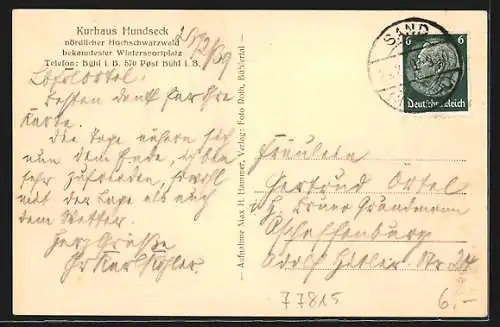 Kurhaus Hundseck
nördlicher Hochschwarzwald
bekanntester Wintersportplatz
Telefon: Bühl i. B. 570 Post Bühl i. B.
Besten Dank für Ihre
Karte.
Die Tage nähern sich
nun dem Ende, ich bin
sehr zufrieden, sowohl
mit der Lage als auch
dem Wetter.
Herzl. Grüße
Ihr Karl Kohler.
— Aufnahme Max H. Hammer, Verlag: Foto Roth, Bühlertal —
SAND
6 6
Deutsches Reich
Fräulein
Gertrud Ortel
Bruno Grundmann
Aschaffenburg
Adolf Hitler Str. 24
77815
6.-